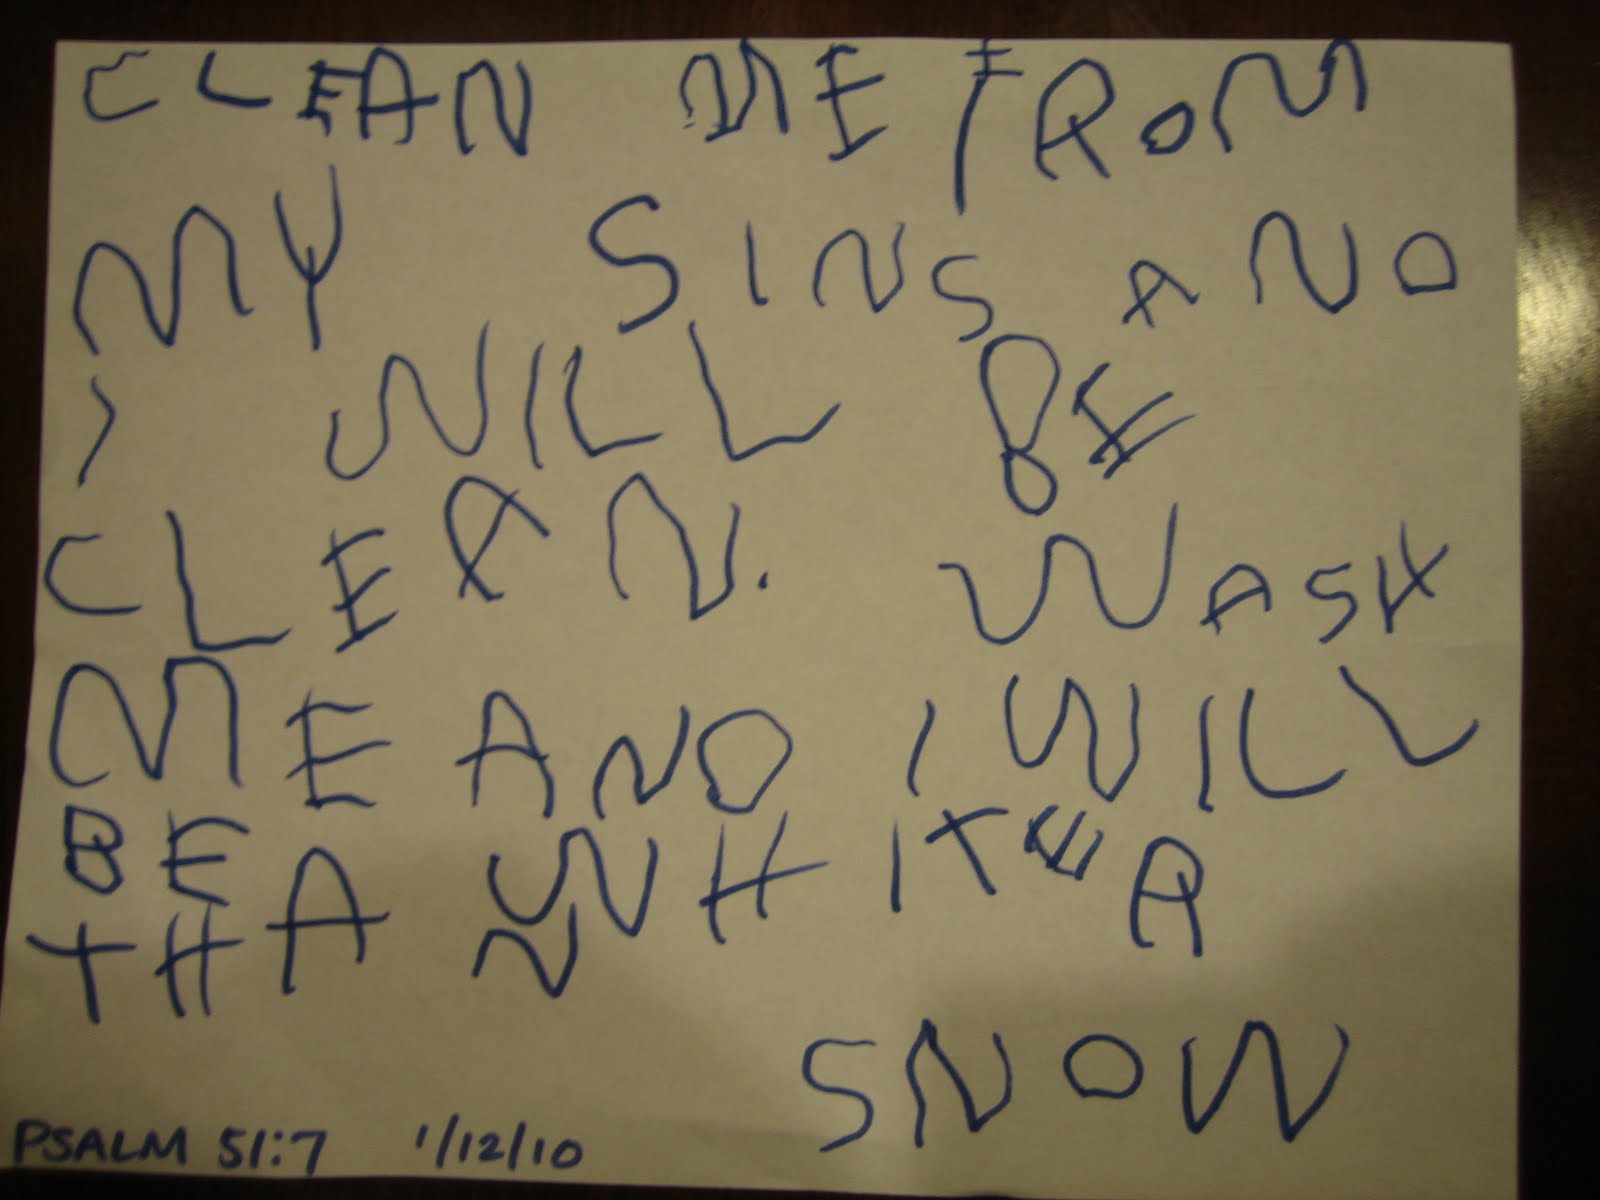 CLEAN ME FROM
MY SINS AND
I WILL BE
CLEAN. WASH
ME AND I WILL
BE WHITER
THAN
SNOW
PSALM 51:7 1/12/10